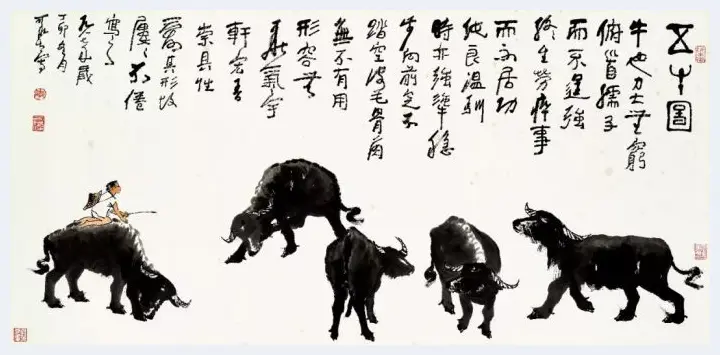 五牛圖
牛也力大無窮
俯首孺子
而不逞強
終生勞瘁事
而不居功
純良溫馴
時亦強犟穩
步向前足不
踏空皮毛骨角
無不有用
形容無
華氣宇
軒宏吾
崇其性
愛其形故
屢不倦
寫之
歲
丁卯
可染寫